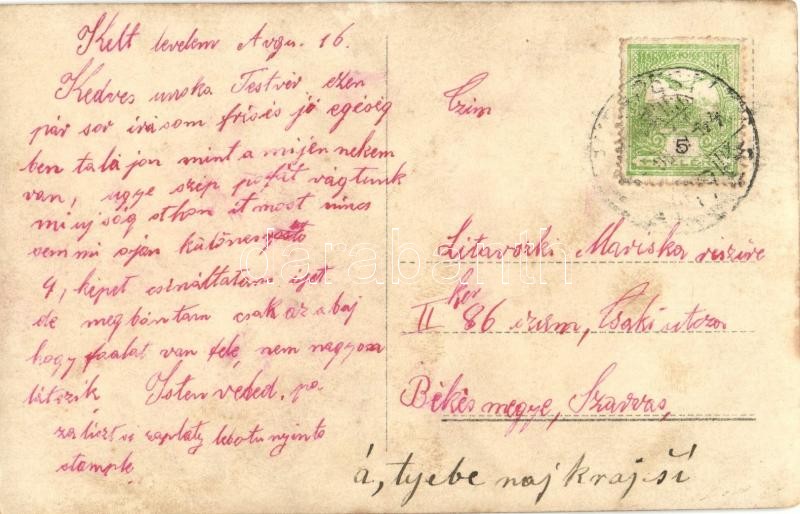 Kelt levelem Avgu. 16.
Kedves unoka Testvér ezen
pár sor irásom friss jó egéség
ben talájon mint a mijén nekem
van, ugye szép pofát vagtunk
mi ujság othon it most nincs
semmi ojan különesgöstö
4, képet csináltatam ijet
de megbántam csak az a baj
hogy faalat van fele, nem nagyon
látszik Isten veled.
stample
Czim
5
Litavorki Mariska részére
II ker 86 szám, Csáki utcza
Békés megye, Szarvas,
á, tyebe naj krajší
darabanth